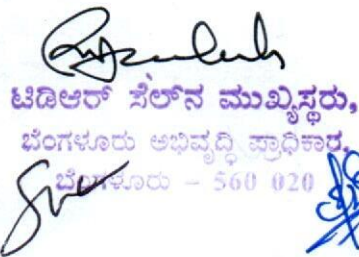 ಟಿಡಿಆರ್ ಸೆಲ್‌ನ ಮುಖ್ಯಸ್ಥರು,
ಬೆಂಗಳೂರು ಅಭಿವೃದ್ಧಿ ಪ್ರಾಧಿಕಾರ,
ಬೆಂಗಳೂರು – 560 020